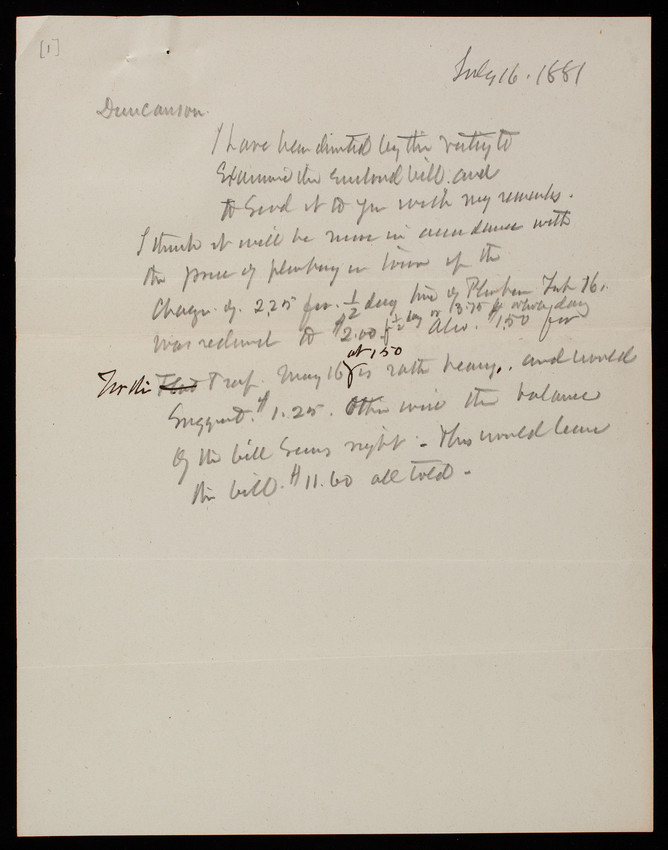 [1]
July 16. 1881
Duncanson.
I have been directed by the vestry to
Examine the enclosed bill. and
to Send it to you with my remarks.
I think it will be more in accordance with
the price of plumbing in town if the
Charge of. 2.25 for. 1/2 day time of Plumber Feb 16.
1/2 day or 3.75 whole day
was reduced to $2.00. for Also. $1.50 for
at 1.50
Trap. May 16 is rather heavy. and would
Suggest. $1.25. Other wise the balance
Of the bill Seems right - this would leave
the bill. $11.60 all told -